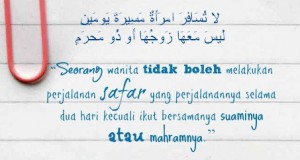 لَا تُسَافِرَ امْرَأَةٌ مَسِيرَةَ يَوْمَيْنِ
لَيْسَ مَعَهَا زَوْجُهَا أَوْ ذُو مَحْرَمٍ
"Seorang wanita tidak boleh melakukan
perjalanan safar yang perjalanannya selama
dua hari kecuali ikut bersamanya suaminya
atau mahramnya."